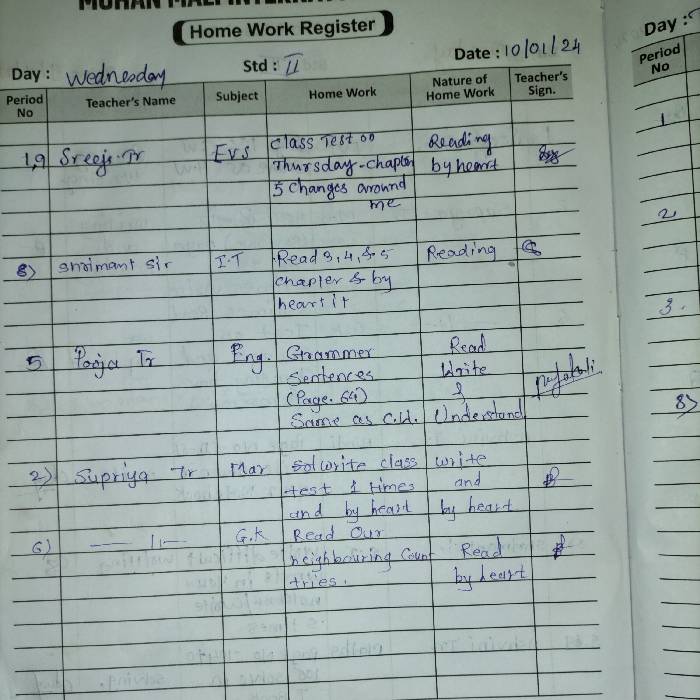 Home Work Register
Day : Wednesday Std : II Date : 10/01/24
Period No Teacher's Name Subject Home Work Nature of Home Work Teacher's Sign.
1,9 Sreeji Tr EVS Class Test on Reading
Thursday - chapter by heart
5 Changes around
me
8) Shrimant Sir I.T Read 3, 4, & 5 Reading
chapter & by
heart it
5 Pooja Tr Eng. Grammer Read
Sentences Write
(Page. 64) &
Same as C.W. Understand
2) Supriya Tr Mar write class write
test 1 times and
and by heart by heart
6) — 11 — G.K Read Our
neighbouring coun Read
tries. by heart
Day :
Period
No
1
2
3.
8)